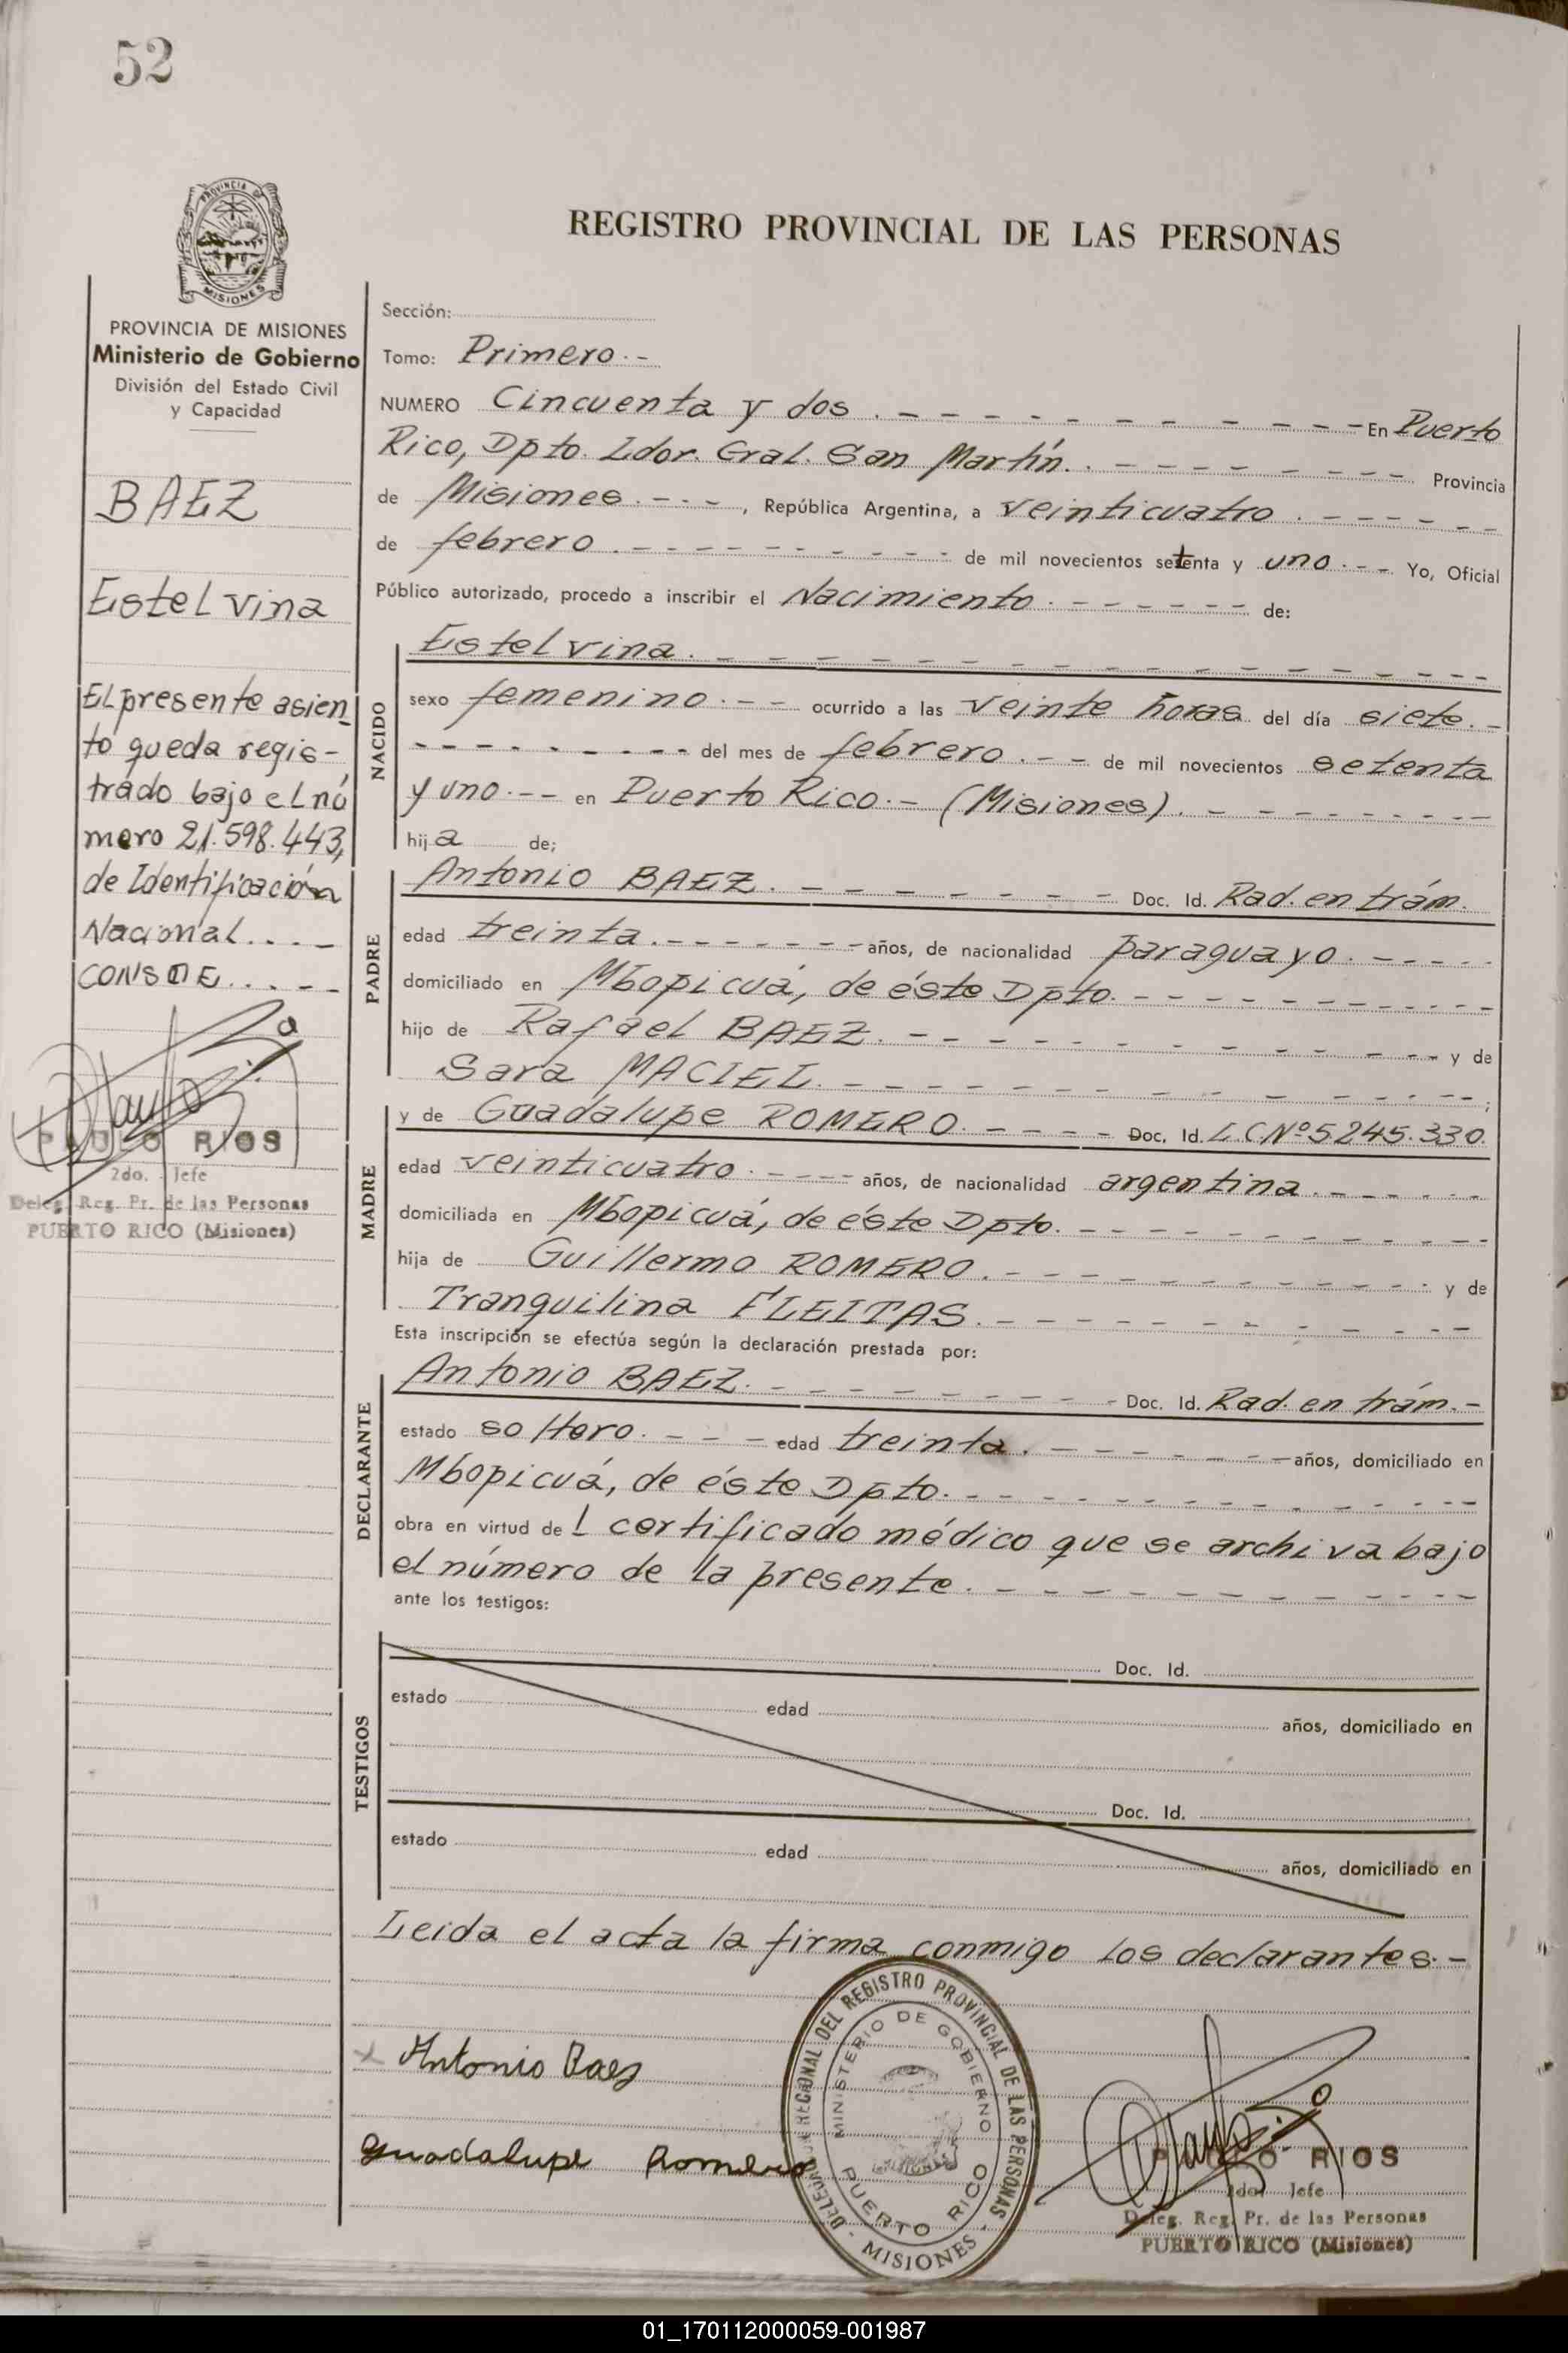 52
PROVINCIA DE
MISIONES
REGISTRO PROVINCIAL DE LAS PERSONAS
PROVINCIA DE MISIONES
Ministerio de Gobierno
División del Estado Civil
y Capacidad
BAEZ
Estelvina
El presente asien
to queda regis-
trado bajo el nú
mero 21.598.443,
de Identificación
Nacional....-
CONSDE....--
PAULO RIOS
2do. Jefe
Deleg. Reg. Pr. de las Personas
PUERTO RICO (Misiones)
Sección:
Tomo: Primero.-
NUMERO Cincuenta y dos.- En Puerto
Rico, Dpto. Ldor. Gral. San Martín.- Provincia
de Misiones.---, República Argentina, a veinticuatro.-
de febrero.- de mil novecientos setenta y uno.-- Yo, Oficial
Público autorizado, procedo a inscribir el Nacimiento.- de:
NACIDO
Estelvina.-
sexo femenino.-- ocurrido a las veinte horas del día siete.-
- del mes de febrero.-- de mil novecientos setenta
y uno.-- en Puerto Rico.- (Misiones).-
hija de;
PADRE
Antonio BAEZ.- Doc. Id. Rad. en trám.
edad treinta.- años, de nacionalidad paraguayo.-
domiciliado en Mbopicuá, de éste Dpto.-
hijo de Rafael BAEZ.- y de
Sara MACIEL.- ;
MADRE
y de Guadalupe ROMERO.- Doc. Id. L.C.Nº5245.330.
edad veinticuatro.- años, de nacionalidad argentina.-
domiciliada en Mbopicuá, de éste Dpto.-
hija de Guillermo ROMERO.- y de
Tranquilina FLEITAS.-
Esta inscripción se efectúa según la declaración prestada por:
DECLARANTE
Antonio BAEZ.- Doc. Id. Rad. en trám.-
estado soltero.- edad treinta.- años, domiciliado en
Mbopicuá, de éste Dpto.-
obra en virtud del certificado médico que se archiva bajo
el número de la presente.-
ante los testigos:
TESTIGOS
Doc. Id.
estado edad años, domiciliado en
Doc. Id.
estado edad años, domiciliado en
Leida el acta la firma conmigo los declarantes.-
x Antonio Baes
Guadalupe Romero
DELEGACION REGIONAL DEL REGISTRO PROVINCIAL DE LAS PERSONAS
MINISTERIO DE GOBIERNO
PUERTO RICO
- MISIONES -
PAULO RIOS
2do. Jefe
Deleg. Reg. Pr. de las Personas
PUERTO RICO (Misiones)
01_170112000059-001987